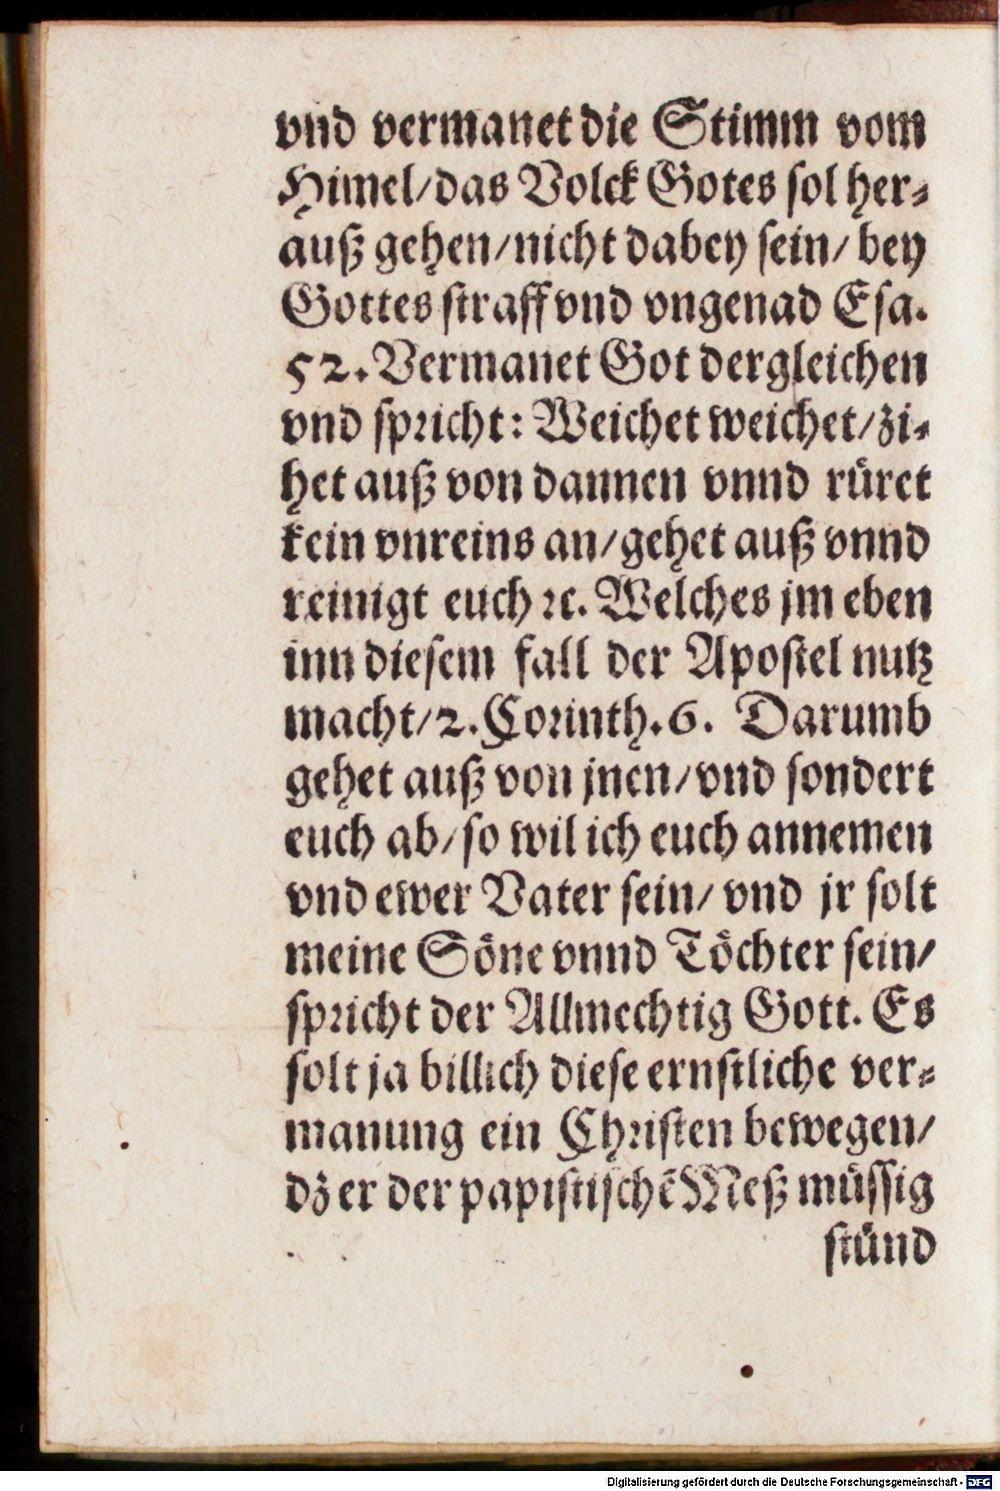 vnd vermanet die Stimm vom
Himel/das Volck Gotes sol her⸗
auß gehen/nicht dabey sein/ bey
Gottes straff vnd vngenad Esa.
52. Vermanet Got dergleichen
vnd spricht: Weichet weichet/zi⸗
het auß von dannen vnnd rüret
kein vnreins an/gehet auß vnnd
reinigt euch ꝛc. Welches jm eben
inn diesem fall der Apostel nutz
macht/2. Corinth. 6. Darumb
gehet auß von jnen/vnd sondert
euch ab/so wil ich euch annemen
vnd ewer Vater sein/ vnd jr solt
meine Söne vnnd Töchter sein/
spricht der Allmechtig Gott. Es
solt ja billich diese ernstliche ver⸗
manung ein Christen bewegen/
dz er der papistischē Meß müssig
stünd
Digitalisierung gefördert durch die Deutsche Forschungsgemeinschaft - DFG